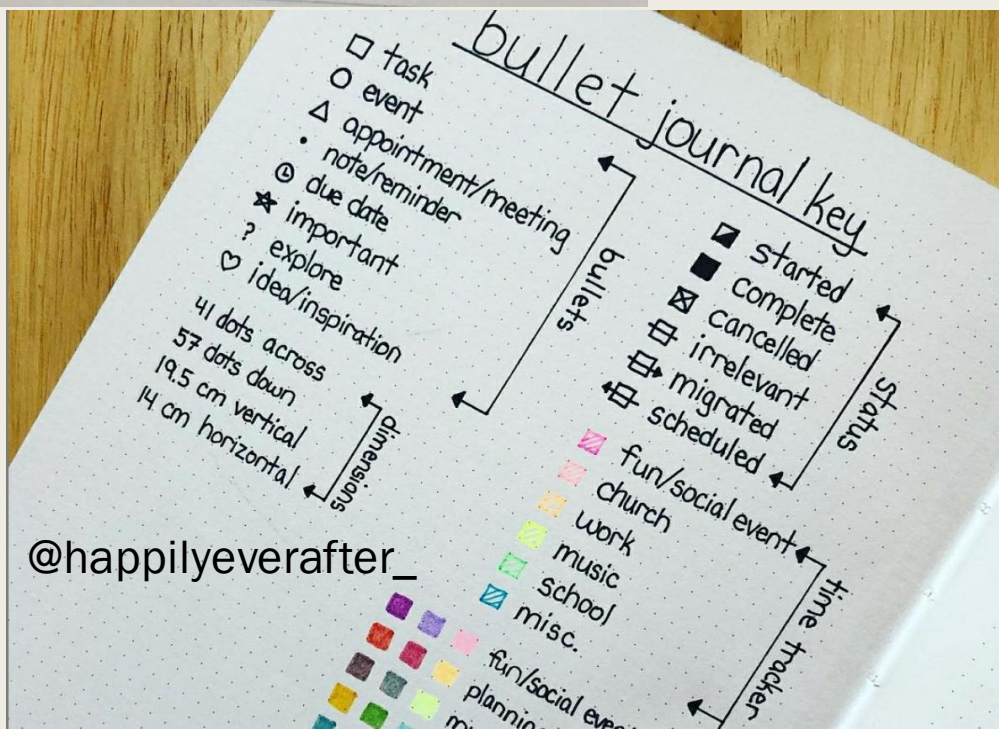 bullet journal key
task
event
appointment/meeting
note/reminder
due date
important
? explore
idea/inspiration
bullets
41 dots across
57 dots down
19.5 cm vertical
14 cm horizontal
dimensions
started
complete
cancelled
irrelevant
migrated
scheduled
status
fun/social event
church
work
music
school
misc.
time tracker
fun/social
planning
@happilyeverafter_